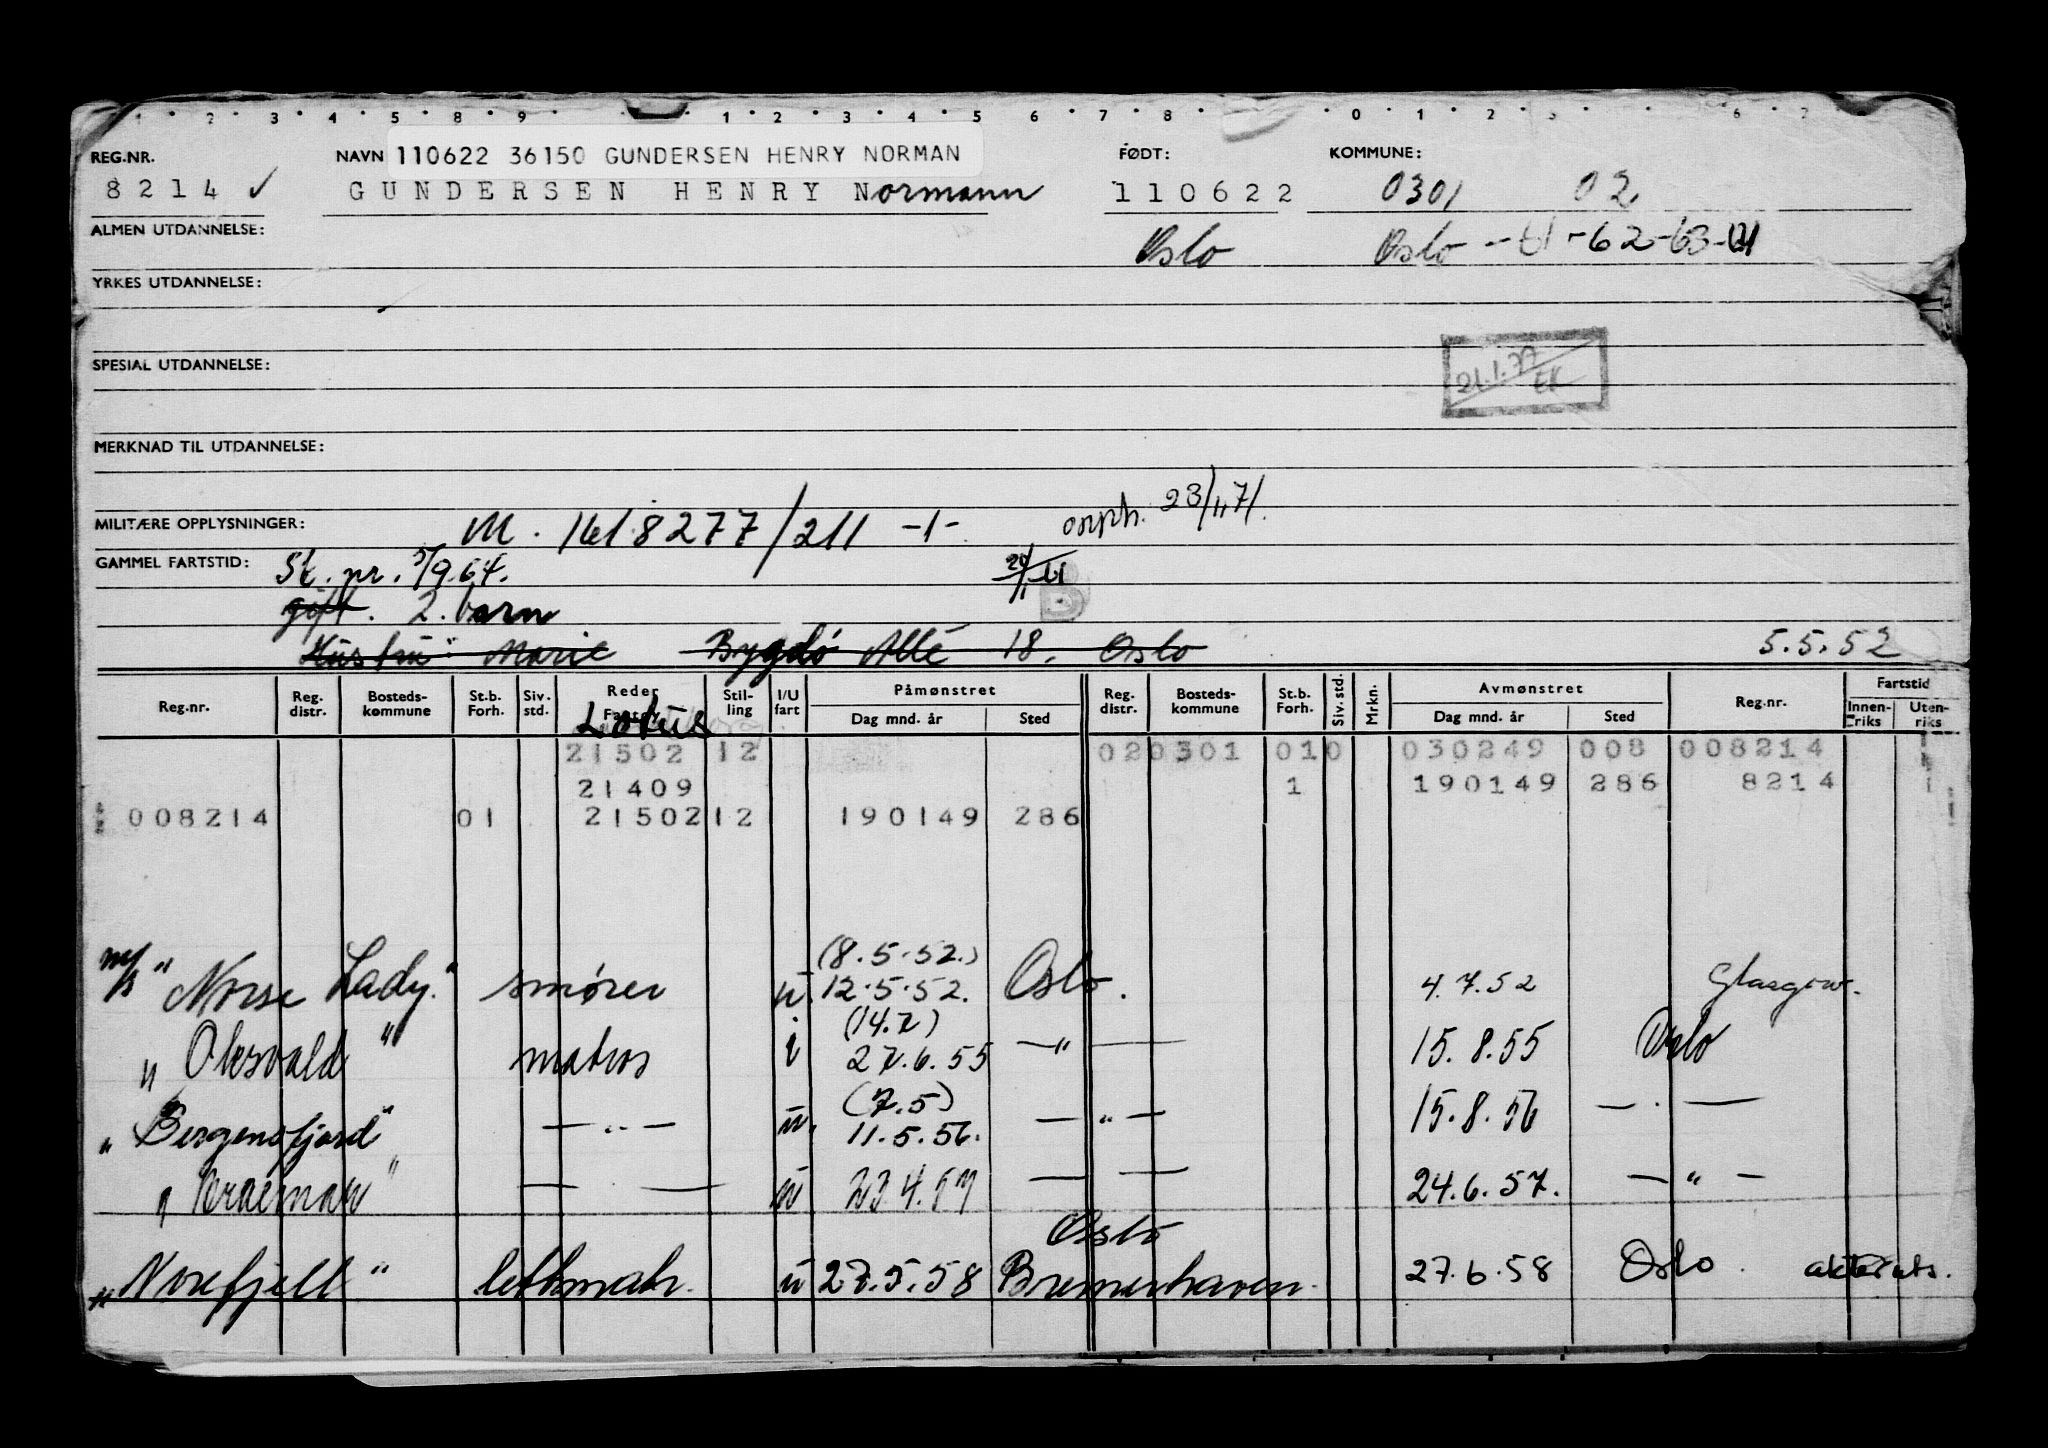 1 2 3 4 5 8 9 1 2 3 4 5 6 7 8 0 1 2 3 6 7
REG.NR. NAVN 110622 36150 GUNDERSEN HENRY NORMAN FØDT: KOMMUNE:
8214 ✓ GUNDERSEN HENRY Normann 110622 0301 02
ALMEN UTDANNELSE: Oslo Oslo -61-62-63-
YRKES UTDANNELSE:
SPESIAL UTDANNELSE:
21.1.77 EK
MERKNAD TIL UTDANNELSE:
MILITÆRE OPPLYSNINGER: M. 1618277/211 -1- 23/11.71.
GAMMEL FARTSTID: St. nr. 5/9.64.
gift. 2. barn
Hustru: Marie Bygdø Allé 18. Oslo 5.5.52
Reg.nr. Reg. distr. Bosteds-kommune St.b. Forh. Siv. std. Reder Stil-ling I/U fart Påmønstret Dag mnd. år Sted Reg. distr. Bosteds-kommune St.b. Forh. Siv. std. Mrkn. Avmønstret Dag mnd. år Sted Reg.nr. Fartstid Innen-riks Uten-riks
Lotus
21502 12 020301 010 030249 008 008214
21409 1 190149 286 8214
008214 01 21502 12 190149 286
(8.5.52.)
m/s "Norse Lady." smører u. 12.5.52. Oslo. 4.7.52 Glasgow.
(14.7)
" " matros i 27.6.55 -"- 15.8.55 Oslo
(7.5)
" Bergensfjord" - " - u. 11.5.56. - " - 15.8.56 - " -
" Braemar" - " - u 23.4.57 - " - 24.6.57. - " -
Oslo
" Norefjell" lettmatr. u 27.5.58 Bremerhaven. 27.6.58 Oslo.